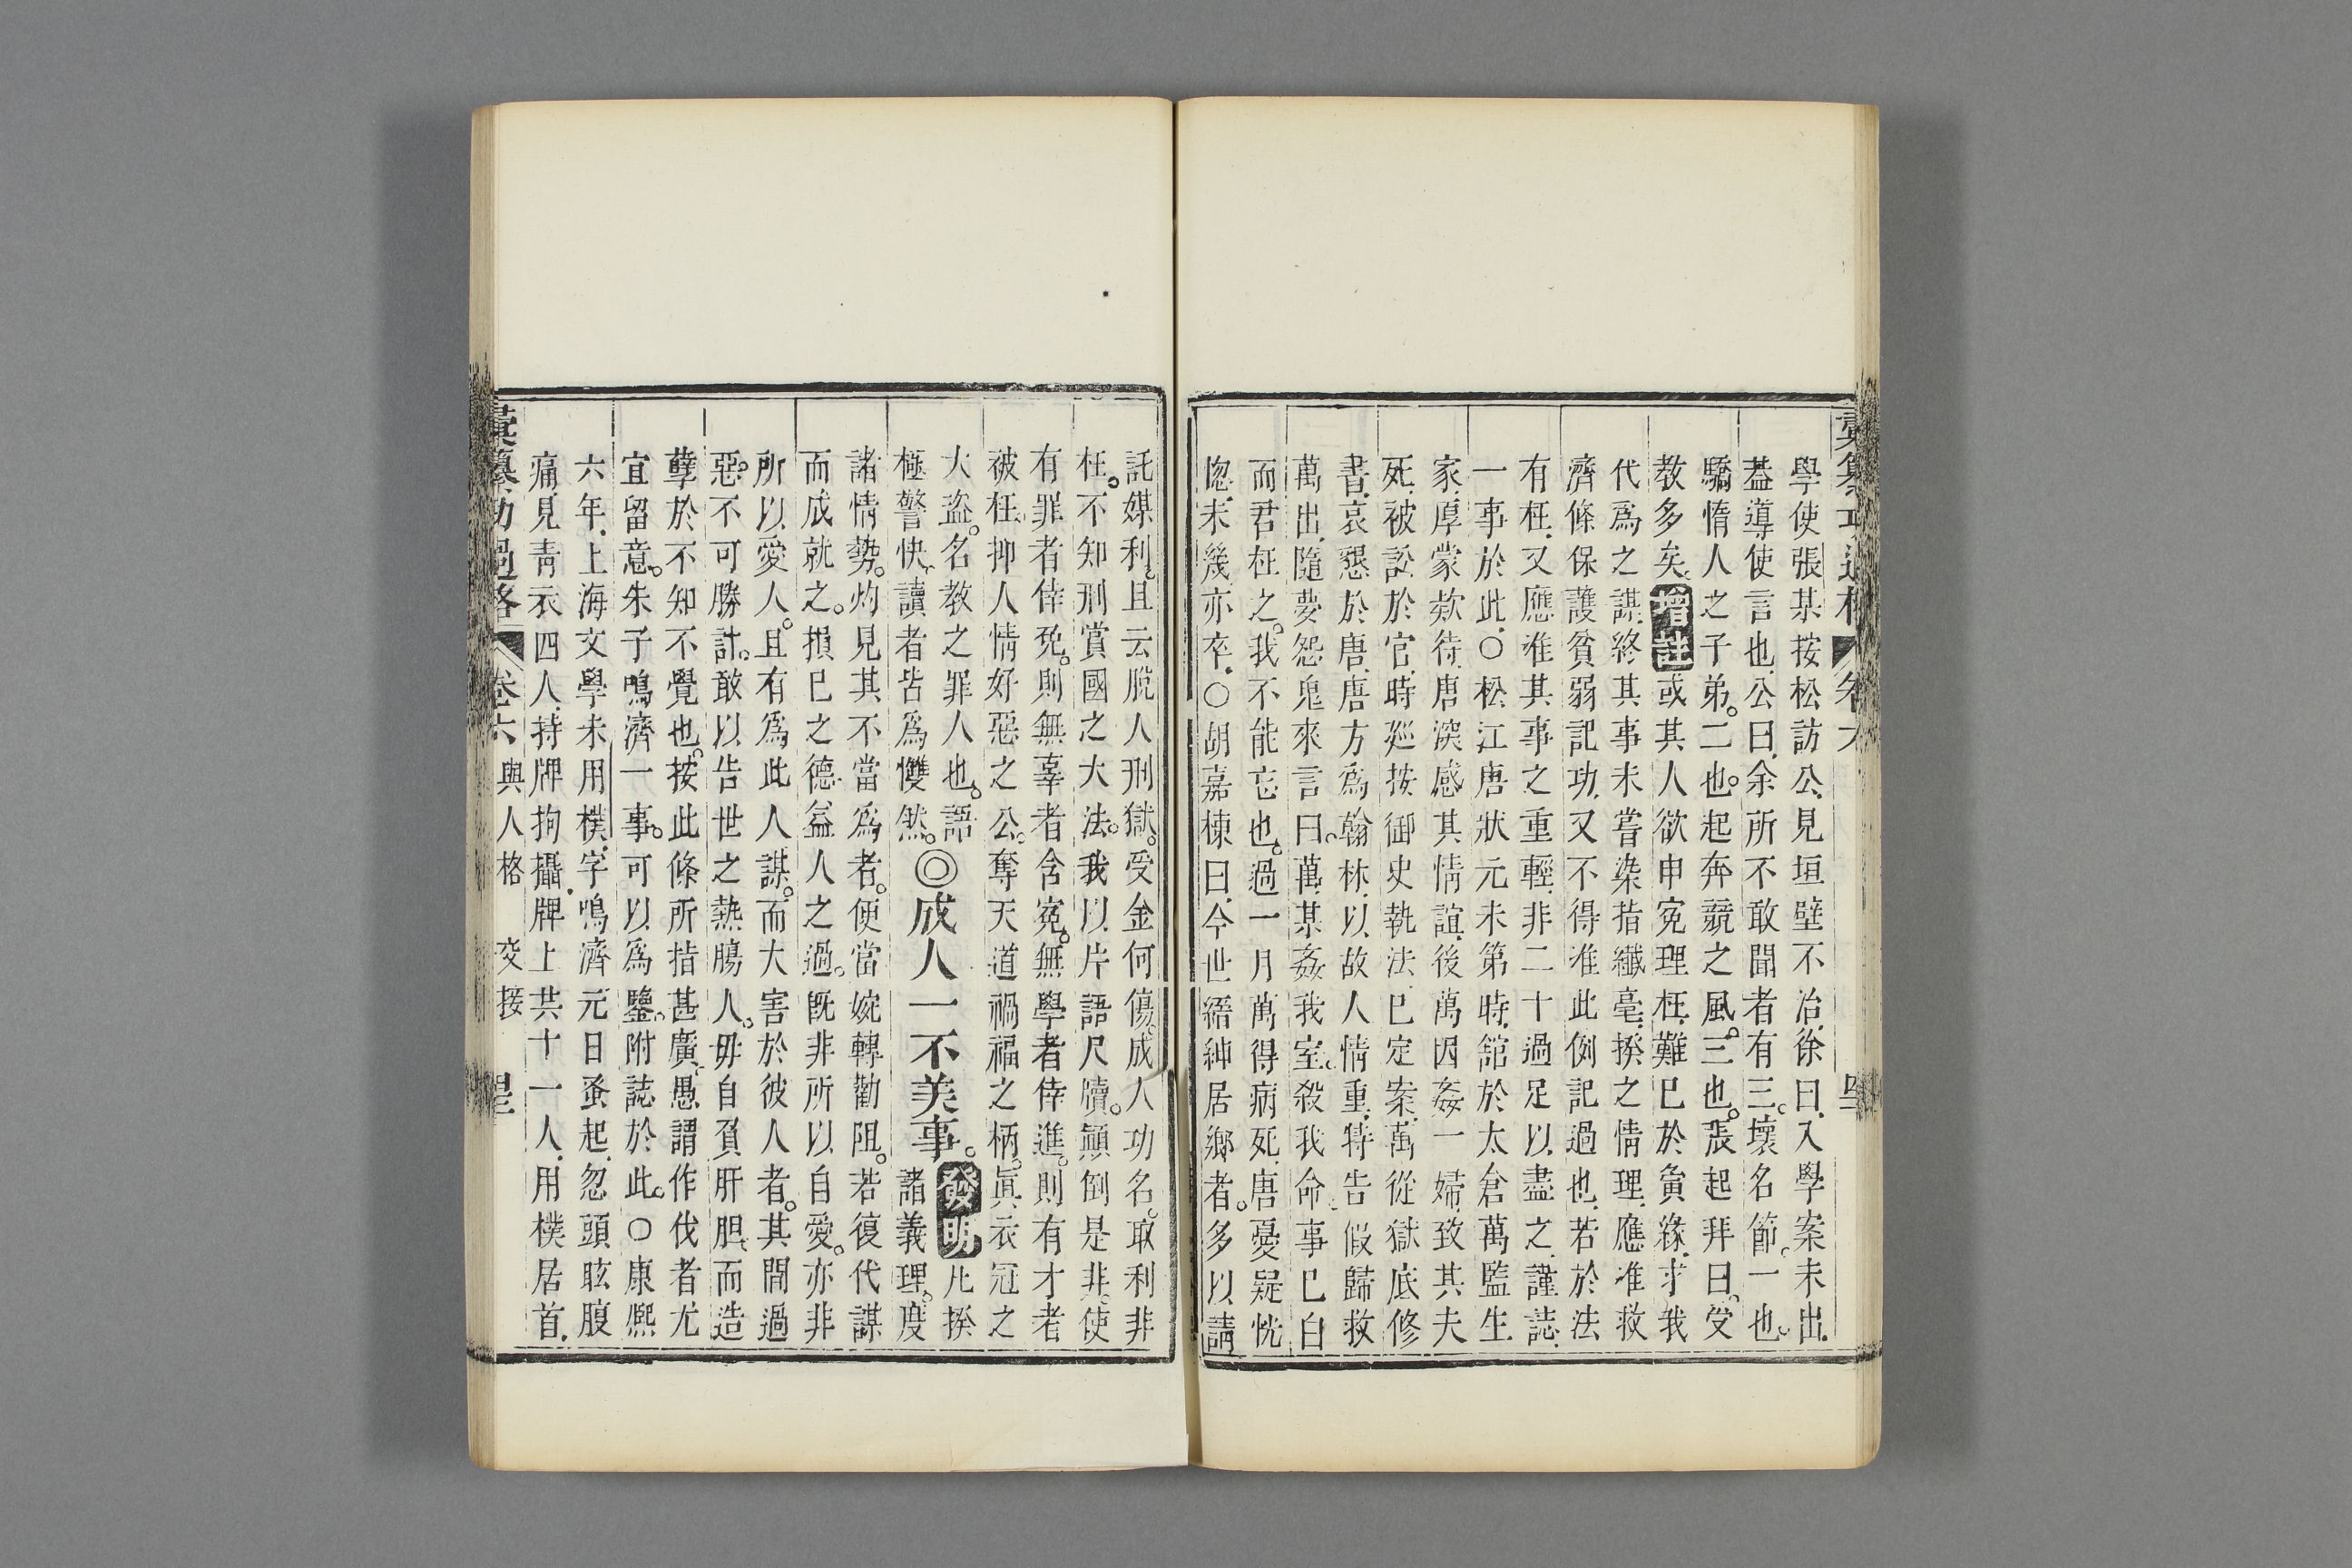 學使張某按松訪公見垣壁不冶徐曰入學案未出
葢導使言也公曰余所不敢聞者有三壞名節一也
驕惰人之子弟二也起奔競之風三也張起拜曰受
教多矣增註或其人欲申寃理枉難已於夤緣求我
代爲之謀終其事未嘗染指纖毫揆之情理應准救
濟條保護貧弱記功又不得准此例記過也若於法
有枉又應准其事之重輕非二十過足以盡之謹誌
一事於此○松江唐狀元未第時舘於太倉萬監生
家厚蒙欵待唐深感其情誼後萬因姦一婦致其夫
死被訟於官時廵按御史執法已定案萬從獄底修
書哀懇於唐唐方爲翰林以故人情重特告假歸救
萬出隨夢怨鬼來言曰萬某姦我室殺我命事已白
而君枉之我不能忘也過一月萬得病死唐憂疑恍
惚未幾亦卒○胡嘉棟曰今世縉紳居鄉者多以請
託媒利且云脫人刑獄受金何傷成人功名取利非
枉不知刑賞國之大法我以片語尺牘顚倒是非使
有罪者倖免則無辜者含寃無學者倖進則有才者
被枉抑人情好惡之公奪天道禍福之柄眞衣冠之
大盜名教之罪人也語
極警快讀者皆爲㦜然◎成人一不美事發明凡揆
諸義理度
諸情勢灼見其不當爲者便當婉轉勸阻若復代謀
而成就之損已之德益人之過旣非所以自愛亦非
所以愛人且有爲此人謀而大害於彼人者其間過
惡不可勝計敢以告世之熱腸人毋自負肝胆而造
孽於不知不覺也按此條所指甚廣愚謂作伐者尤
宜留意朱子鳴濟一事可以爲鑒附誌於此○康熙
六年上海文學朱用樸字鳴濟元日蚤起忽頭眩腹
痛見靑衣四人持牌拘攝牌上共十一人用樸居首
彙纂功過格 卷六與人格 交接